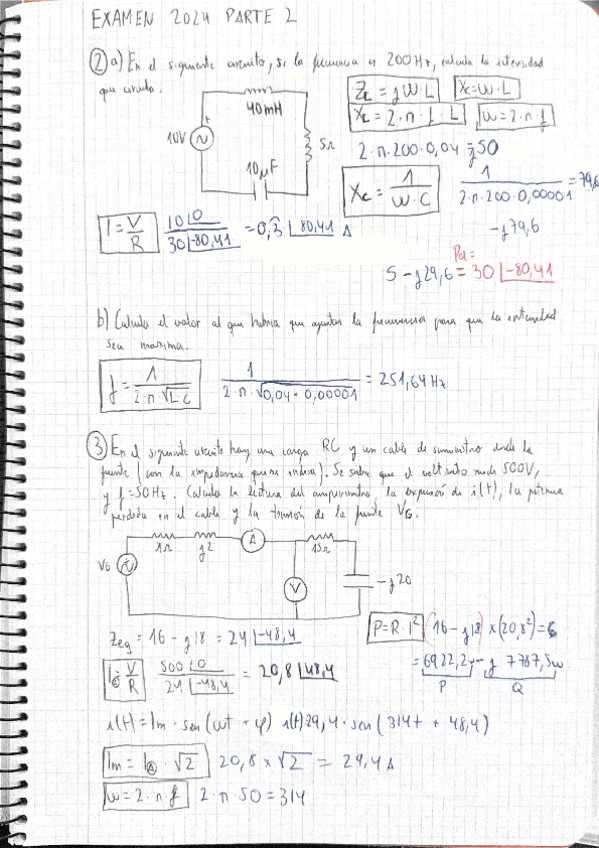 EXAMEN 2024 PARTE 2
2 a) En el siguiente circuito, si la frecuencia es 200 Hz, calcula la intensidad
que circula.
40mH
10V
5Ω
10μF
ZL = jW·L
Xc = W·L
XL = 2·π·f·L
W = 2·π·f
2·π·200·0,04 = j50
Xc = 1/W·C
1/2·π·200·0,00001 = 79,6
-j79,6
I = V/R
10∟0/30∟-80,41 = 0,3∟80,41 A
Pol =
5 - j29,6 = 30∟-80,41
b) Calcula el valor al que habria que ajustar la frecuencia para que la intensidad
sea maxima.
f = 1/2·π·√L·C
1/2·π·√0,04·0,00001 = 251,64 Hz
3 En el siguiente circuito hay una carga RC y un cable de suministro desde la
fuente (con la impedancia que se indica). Se sabe que el voltimetro mide 500V,
y f = 50Hz. Calcula la lectura del amperimetro, la expresión de i(t), la potencia
perdida en el cable y la tensión de la fuente VG.
1Ω
j2
A
15Ω
VG
V
-j20
Zeq = 16 - j18 = 24∟-48,4
P = R·I²
(16 - j18) × (20,8²) =
= 6922,2 - j 7787,5w
P
Q
I = V/R
500∟0/24∟-48,4 = 20,8∟48,4
i(t) = Im · sen(ωt + φ) i(t): 29,4 · sen(314t + 48,4)
Im = IA · √2
20,8 × √2 = 29,4 A
W = 2·π·f
2·π·50 = 314